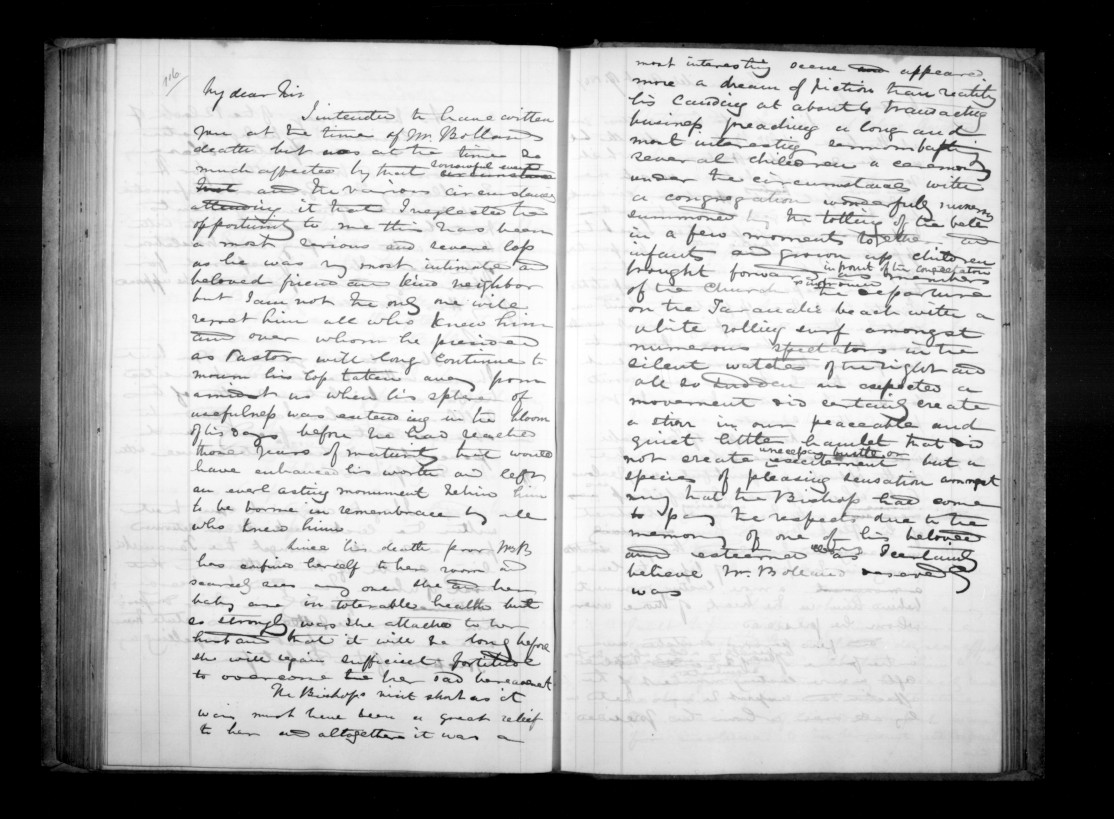 116
My dear Sir
I intended to have written
you at the time of Mr Bollands
death but was at the time so
much affected by that sorrowful event circumstance
that and the various circumstances
attending it that I neglected the
opportunity to me this has been
a most serious and severe loss
as he was my most intimate and
beloved friend and kind neighbor
but I am not the only one will
regret him all who knew him
and over whom he presided
as Pastor will long continue to
mourn his loss taken away from
amidst us when his sphere of
usefulness was extending in the bloom
of his days before he had reached
those years of maturity that would
have enhanced his worth and left
an everlasting monument behind him
to be borne in remembrance by all
who knew him
Since his death poor Mrs B
has confined herself to her room and
scarcely sees any one she and her
baby are in tolerable health but
so strongly was she attached to her
husband that it will be long before
she will regain sufficient fortitude
to overcome the her sad bereavement
The Bishops visit short as it
was must have been a great relief
to her and altogether it was a
most interesting scene and appeared
more a dream of fiction than reality
his landing at about 6 transacting
business preaching a long and
most interesting sermon baptizing
several children a ceremony
under the circumstances with
a congregation wonderfully numerous
summoned by the tolling of the bell
in a few moments together and
infants and grown up children
brought forward in front of the congregation as members
of the Church the departure
on the Taranaki beach with a
white rolling surf amongst
numerous spectators in the
silent watches of the night and
all so sudden and unexpected a
movement did certainly create
a stir in our peaceable and
quiet little hamlet that did
not create unnecessary bustle or excitement but a
species of pleasing sensation amongst
many that the Bishop had come
to pay the respects due to the
memory of one of his beloved
and esteemed as I certainly
believe Mr Bolland deservedly
was